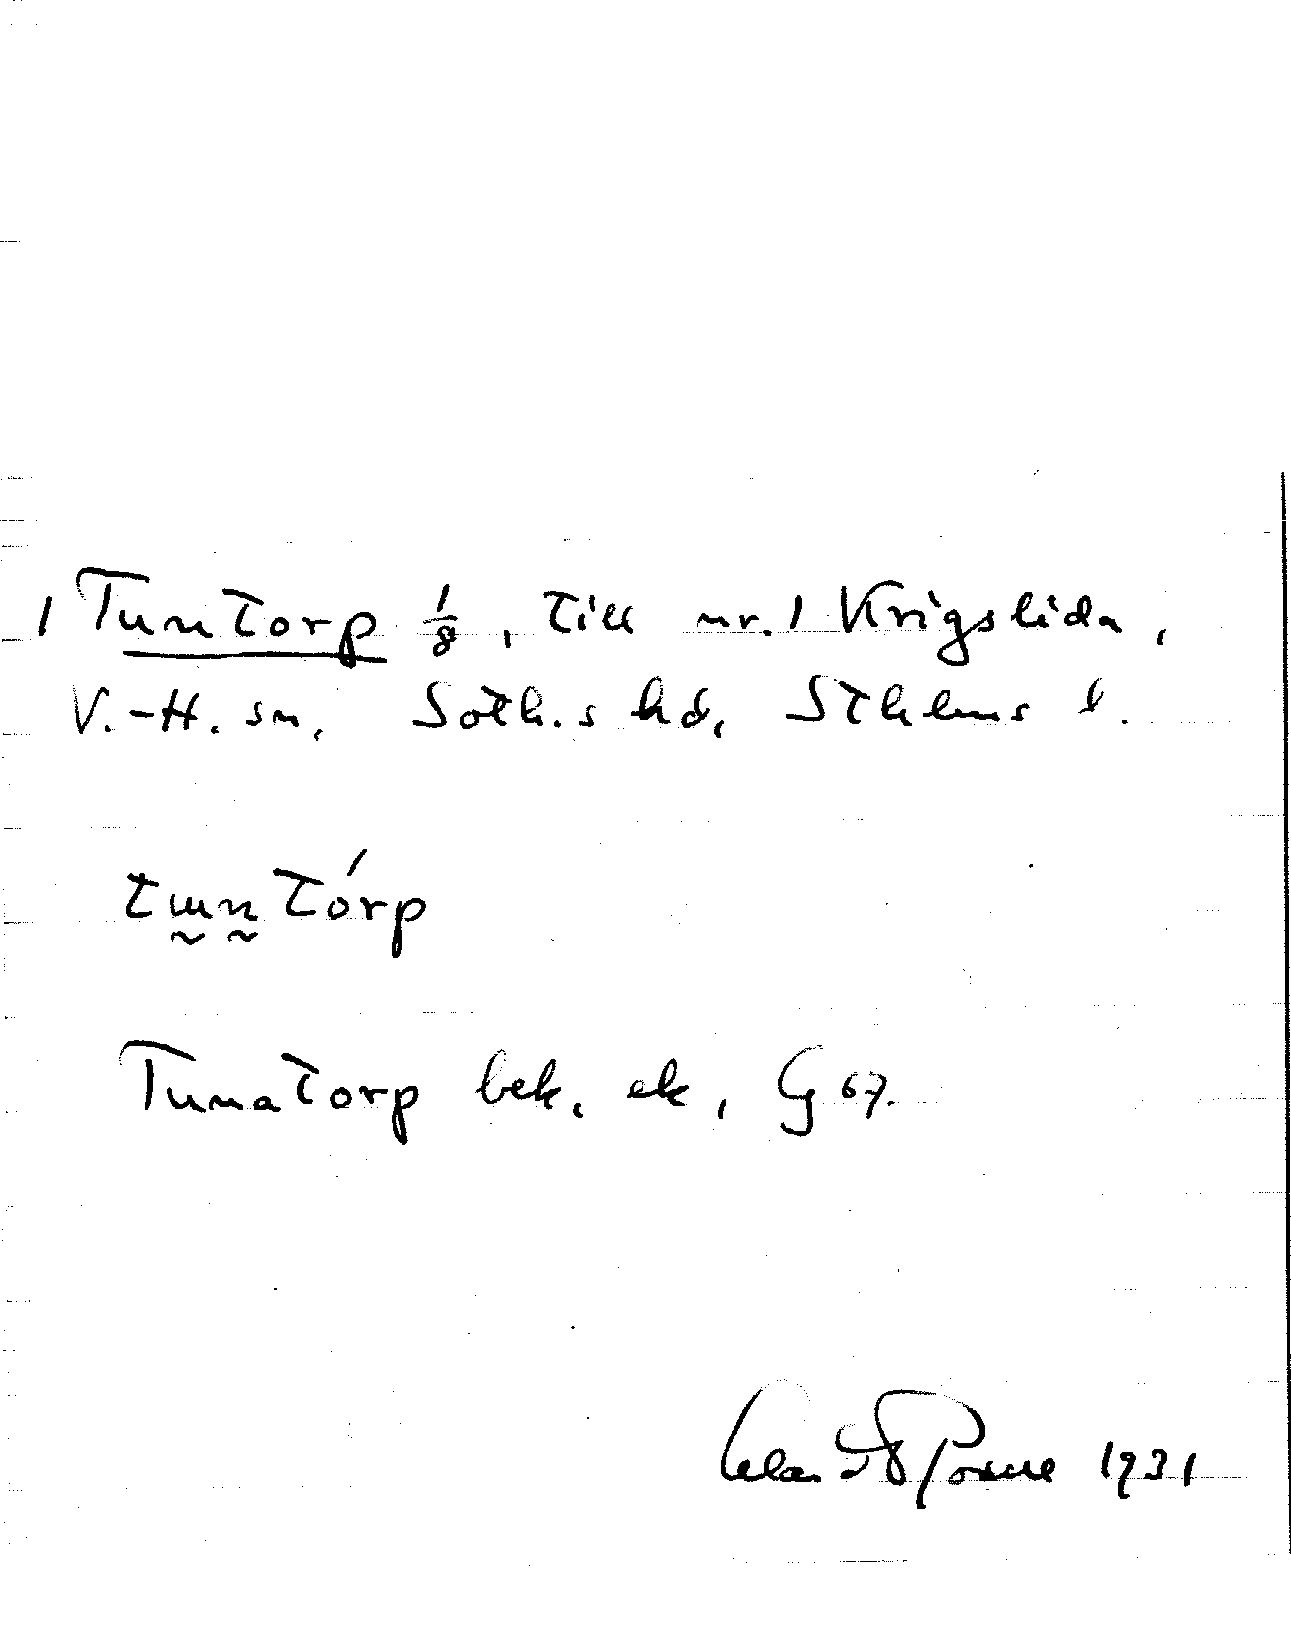 1 Tuntorp 1/8, till nr. 1 Krigslida,
V.-H. sn, Soth.s hd, Sthlms l.
tɯntórp
Tunatorp bek. ek, G 67.
1931